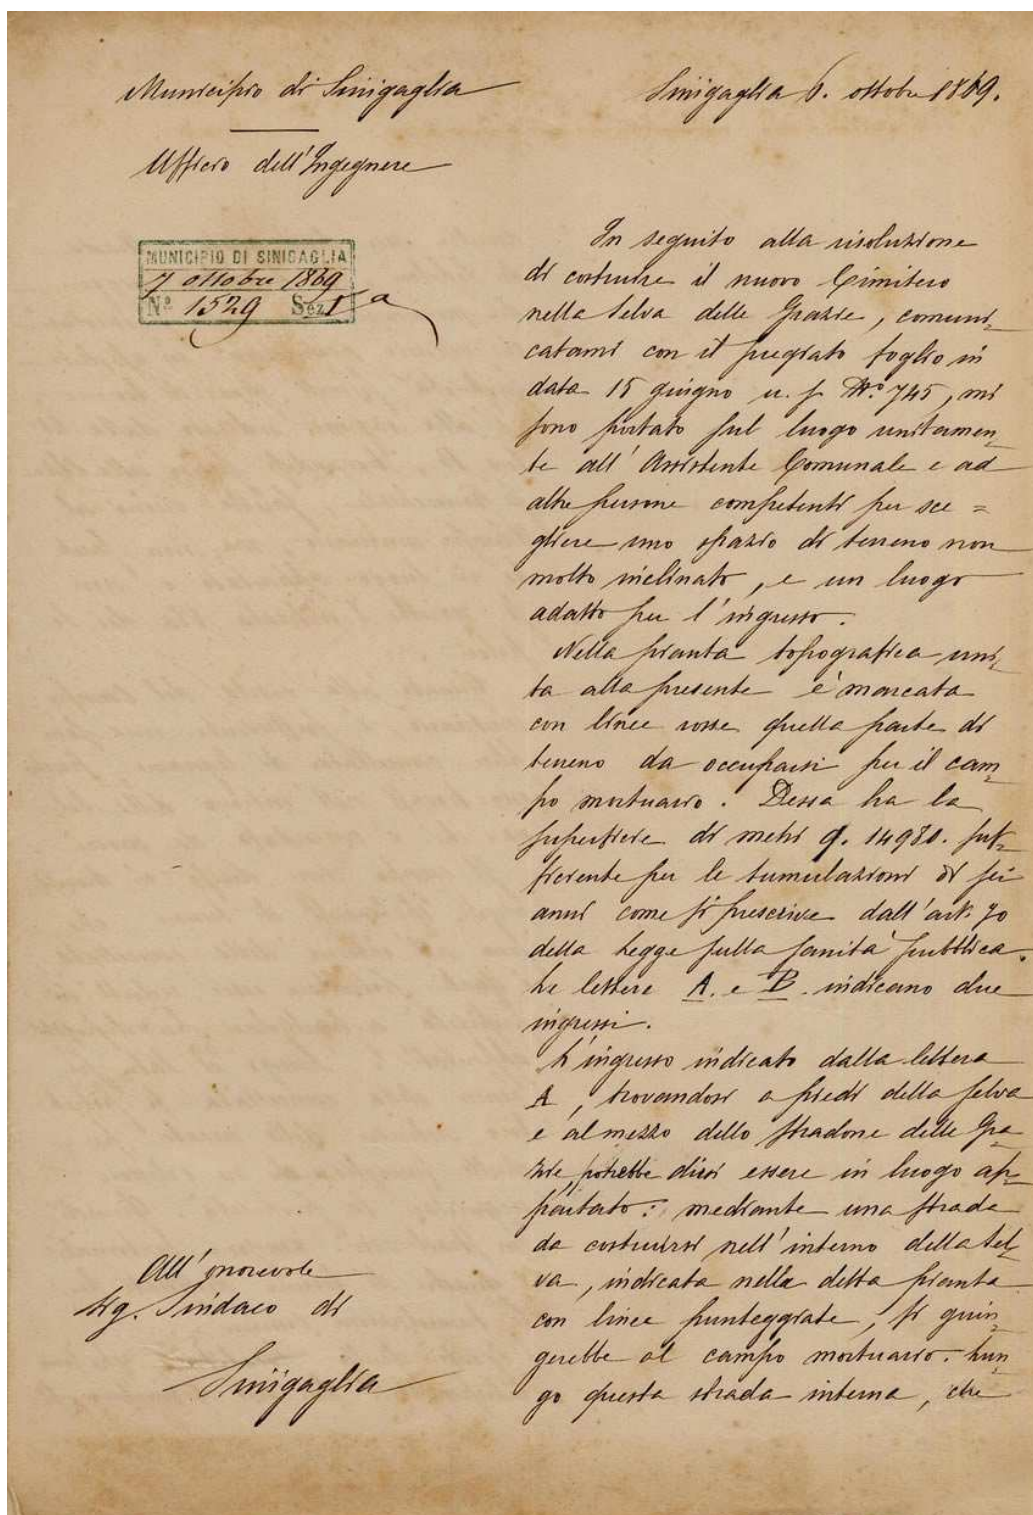 Municipio di Sinigaglia
Ufficio dell'Ingegnere
Sinigaglia 6. ottobre 1869.
MUNICIPIO DI SINIGAGLIA
7 ottobre 1869
Nº 1529 Sez. Iª
In seguito alla risoluzione
di costruire il nuovo Cimitero
nella Selva delle Grazie, comuni=
catami con il pregiato foglio in
data 15 giugno u. p. Nº 745, mi
sono portato sul luogo unitamen=
te all'Assistente Comunale e ad
altre persone competenti per sce=
gliere uno spazio di terreno non
molto inclinato, e un luogo
adatto per l'ingresso.
Nella pianta topografica uni=
ta alla presente è marcata
con linee rosse quella parte di
terreno da occuparsi per il cam=
po mortuario. Dessa ha la
superficie di metri q. 14980. suf=
ficiente per le tumulazioni di sei
anni come si prescrive dall'art. 70
della Legge sulla sanità pubblica.
Le lettere A. e B. indicano due
ingressi.
L'ingresso indicato dalla lettera
A, trovandosi a piedi della selva
e al mezzo dello stradone delle Gra=
zie, potrebbe dirsi essere in luogo ap=
partato: mediante una strada
da costruirsi nell'interno della Sel=
va, indicata nella detta pianta
con linee punteggiate, si giun=
gerebbe al campo mortuario. Lun=
go questa strada interna, che
All'onorevole
Sig. Sindaco di
Sinigaglia